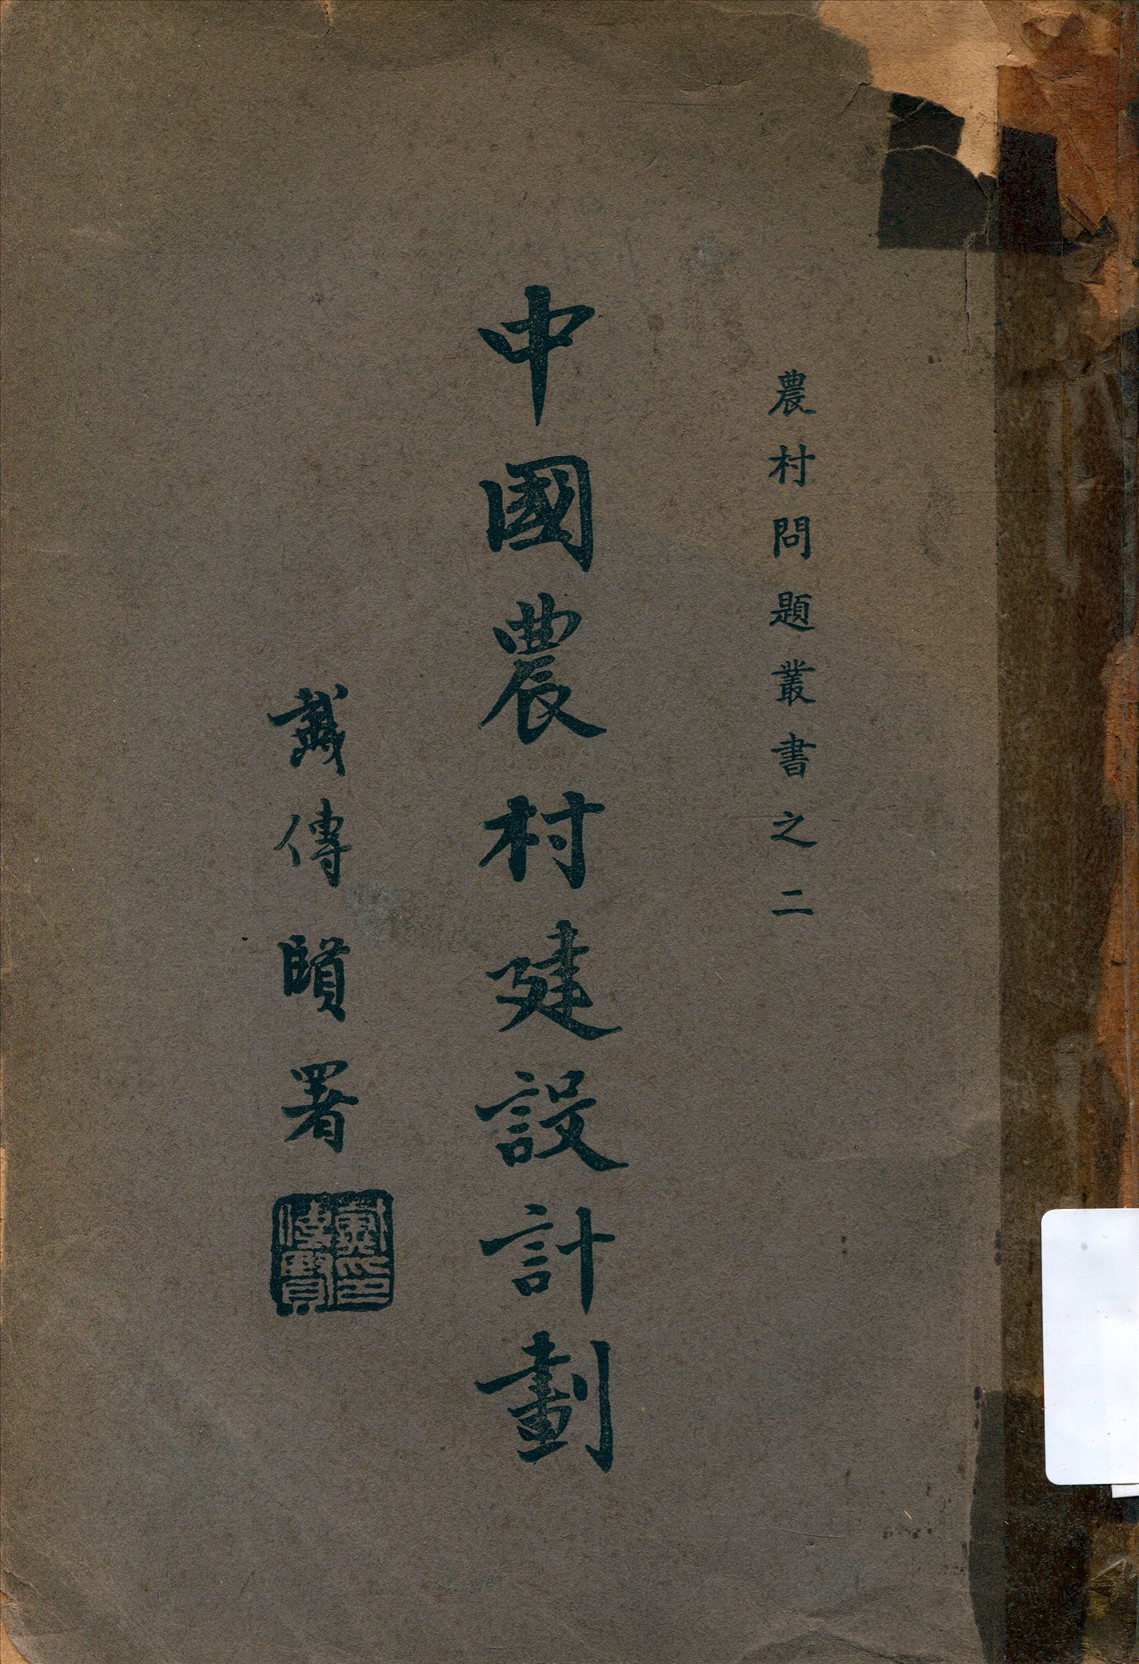 農村問題叢書之二
中國農村建設計劃
戴傳賢署
戴印
傳賢